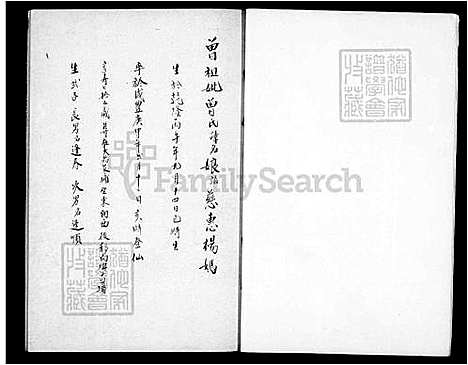 曾祖妣曾氏諱名娘諡慈惠楊媽
生於乾隆丙午年九月十四日巳時生
卒於咸豐庚申年六月十一日亥時登仙
享壽
坐東向西
生弍子 長男名逢春 次男名逢順
FamilySearch